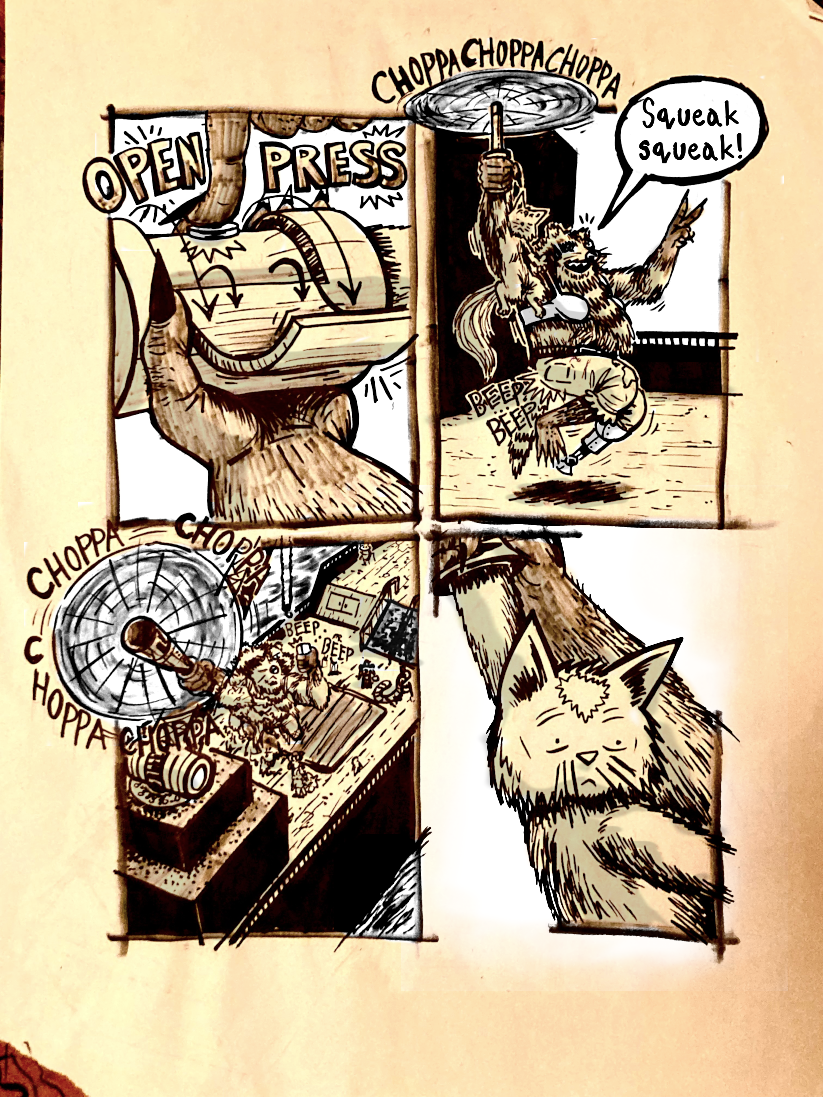 OPEN PRESS
CHOPPA CHOPPA CHOPPA
Squeak
squeak!
BEEP
BEEP
CHOPPA CHOPPA
CHOPPA CHOPPA
BEEP
BEEP